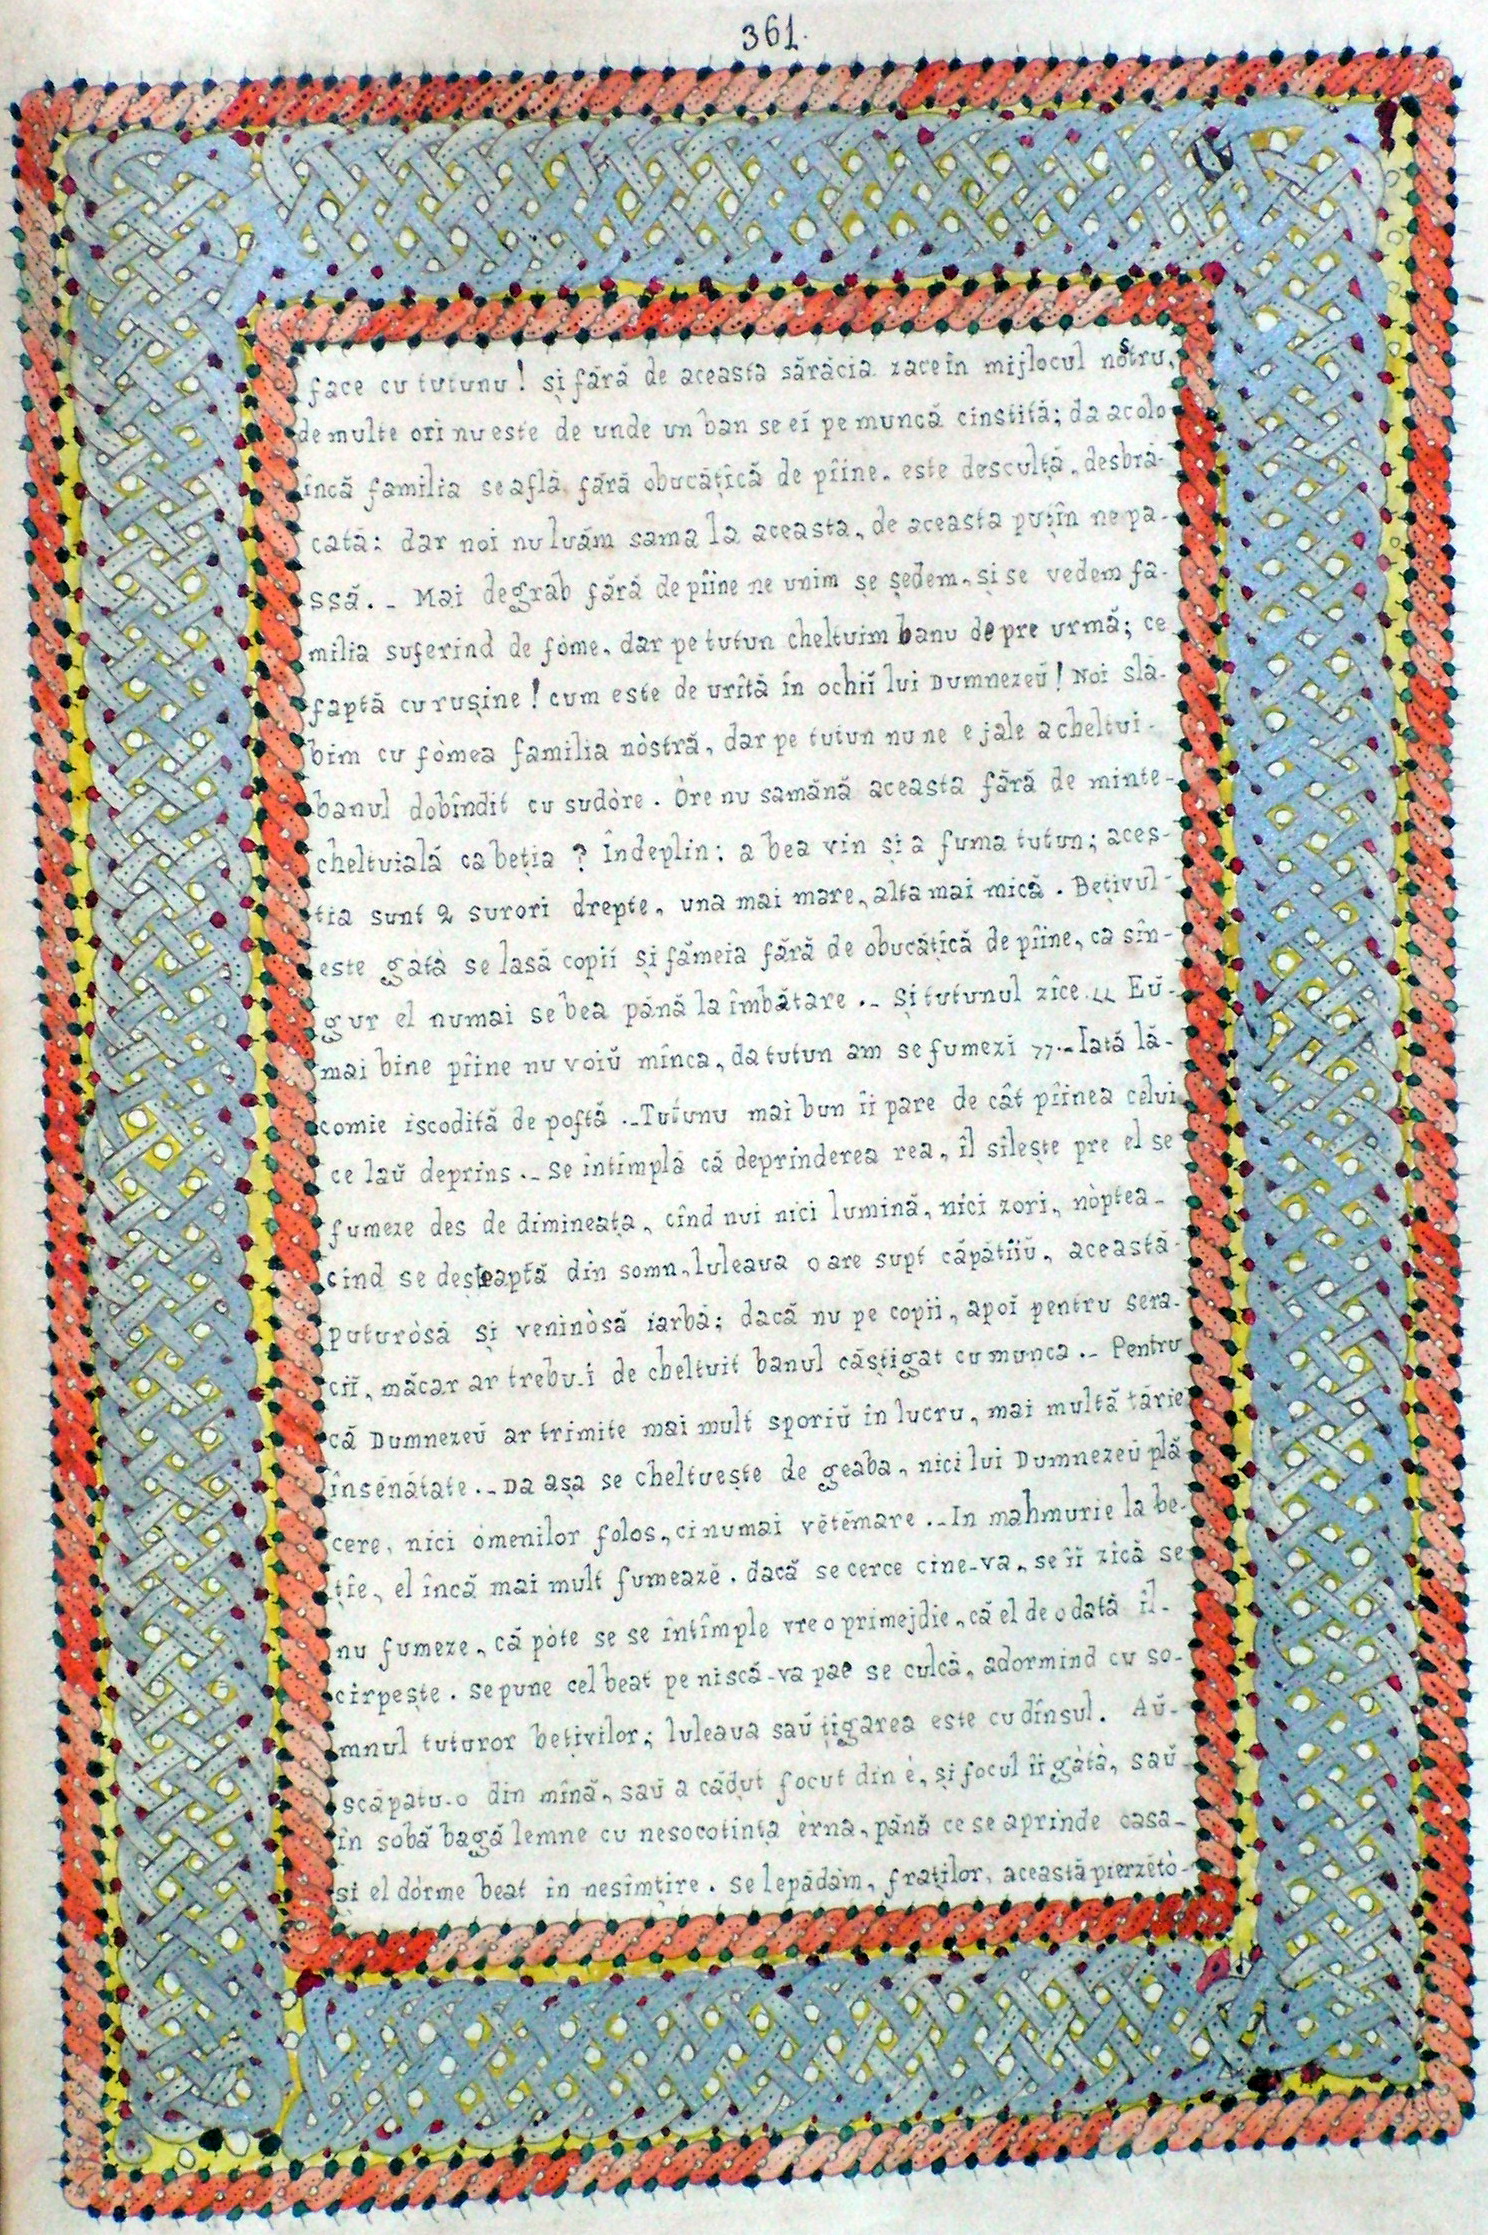 361.
face cu tutunu! și fără de aceasta sărăcia zace în mijlocul nostru,
de multe ori nu este de unde un ban se eí pe muncă cinstită; da acolo
încă familia se află, fără obucățică de pîine, este desculță, desbră-
cată: dar noi nu luăm sama la aceasta, de aceasta puțîn ne pa-
ssă. – Mai degrab fără de pîine ne unim se ședem, și se vedem fa-
milia suferind de fòme, dar pe tutun cheltuim banu de pre urmă; ce
faptă cu rușine! cum este de urîtă în ochiĭ lui Dumnezeŭ! Noi slă-
bim cu fòmea familia nòstră, dar pe tutun nu ne e jale a cheltui-
banul dobîndit cu sudòre. Òre nu samănă aceasta fără de minte-
cheltuială ca beția? Îndeplin: a bea vin și a fuma tutun; aceș-
tia sunt 2 surori drepte, una mai mare, alta mai mică. Bețivul-
este gàtà se lasă copií și fămeia fără de obucățică de pîine, ca sîn-
gur el numai se bea până la îmbătare. – Și tutunul zîce. „ Eŭ-
mai bine pîine nu voiŭ mînca, da tutun am se fumezi ”. – Iată lă-
comie iscodită de poftă. – Tutunu mai bun îi pare de cât pîinea celui
ce laŭ deprins. – Se întîmplă că deprinderea rea, îl silește pre el se
fumeze des de dimineața, cînd nui nici lumină, nici zori, nòptea-
cind se deșteaptă din somn, luleaua o are supt căpătîiŭ, această-
puturòsă și veninòsă iarbă; dacă nu pe copii, apoĭ pentru sera-
ciĭ, măcar ar trebu-i de cheltuit banul căștigat cu munca. – Pentru
că Dumnezeŭ ar trimite mai mult sporiŭ în lucru, mai multă tărie
însénătate. – Da așa se cheltuește de geaba, nici lui Dumnezeŭ plă
cere, nici òmenilor folos, ci numai vĕtĕmare. – In mahmurie la be-
țîe, el încă mai mult fumeazĕ. dacă se cerce cine-va, se îĭ zică se
nu fumeze, că pòte se se întîmple vre o primejdie, că el de o dată îl-
cirpește. Se pune cel beat pe niscă-va pae se culcă, adormind cu so-
mnul tuturor bețivilor; luleaua saŭ țigarea este cu dînsul. Aŭ-
scăpatu-o din mînă, saŭ a cădut focut din è, și focul îi gàtà, saŭ
în sobă bagă lemne cu nesocotința èrna, până ce se aprinde casa-
și el dòrme beat în nesîmțire. Se lepădàm, fraților, această pierzĕtò-